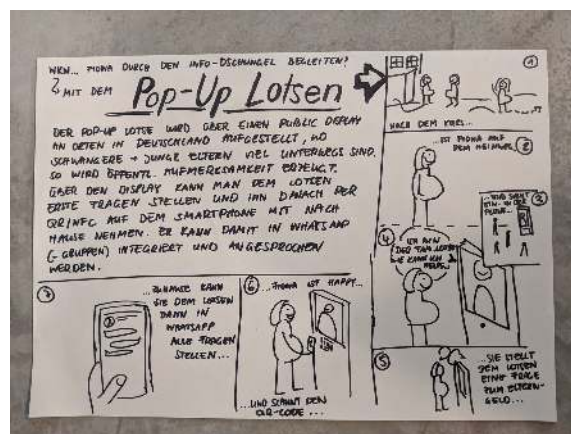 WKW... FIONA DURCH DEN INFO-DSCHUNGEL BEGLEITEN?
MIT DEM Pop-Up Lotsen
DER POP-UP LOTSE WIRD ÜBER EINEN PUBLIC DISPLAY
AN ORTEN IN DEUTSCHLAND AUFGESTELLT, WO
SCHWANGERE + JUNGE ELTERN VIEL UNTERWEGS SIND.
SO WIRD ÖFFENTL. AUFMERKSAMKEIT ERZEUGT.
ÜBER DEN DISPLAY KANN MAN DEM LOTSEN
ERSTE FRAGEN STELLEN UND IHN DANACH PER
QR/NFC AUF DEM SMARTPHONE MIT NACH
HAUSE NEHMEN. ER KANN DAMIT IN WHATSAPP
(-GRUPPEN) INTEGRIERT UND ANGESPROCHEN
WERDEN.
1
NACH DEM KURS...
2
...IST FIONA AUF
DEM HEIMWEG
3
...UND SIEHT
4
ICH BIN
WIE KANN ICH
HELFEN?
5
...SIE STELLT
DEM LOTSEN
EINE FRAGE
ZUM ELTERN-
GELD...
6
...FIONA IST HAPPY...
...UND SCANNT DEN
QR-CODE...
7
...ZUHAUSE KANN
SIE DEM LOTSEN
DANN IN
WHATSAPP
ALLE FRAGEN
STELLEN...